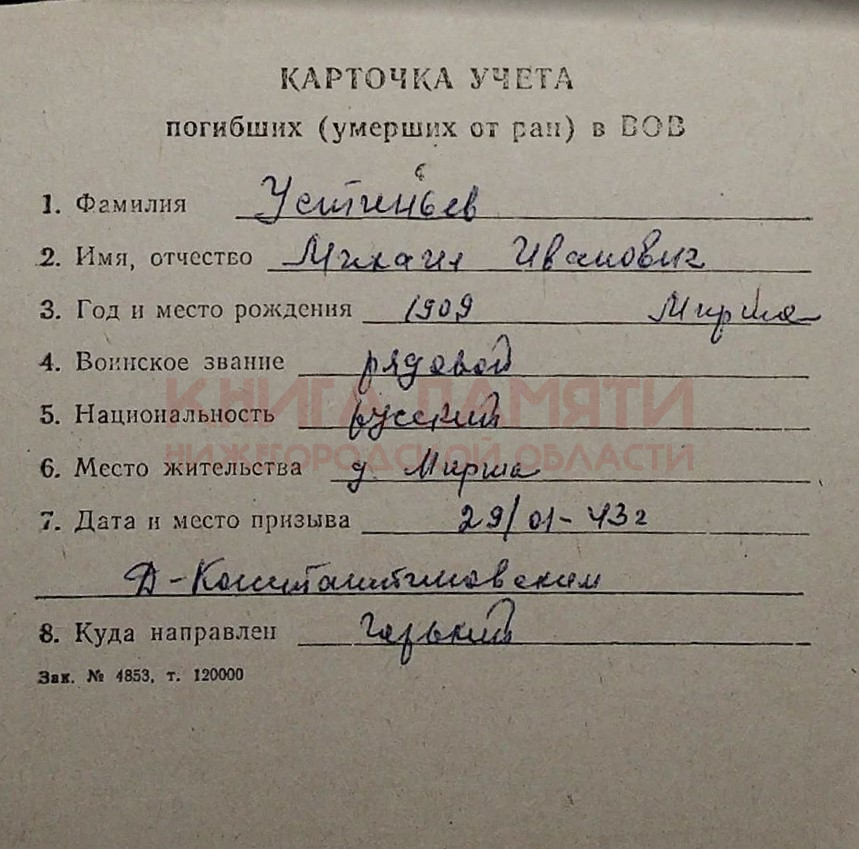 КАРТОЧКА УЧЕТА
погибших (умерших от ран) в ВОВ
1. Фамилия Устиньев
2. Имя, отчество Михаил Иванович
3. Год и место рождения 1909 Мирша
4. Воинское звание рядовой
КНИГА ПАМЯТИ
5. Национальность русский
НИЖЕГОРОДСКОЙ ОБЛАСТИ
6. Место жительства д. Мирша
7. Дата и место призыва 29/01-43г
Д-Константиновским
8. Куда направлен Горький
Зак. № 4853, т. 120000